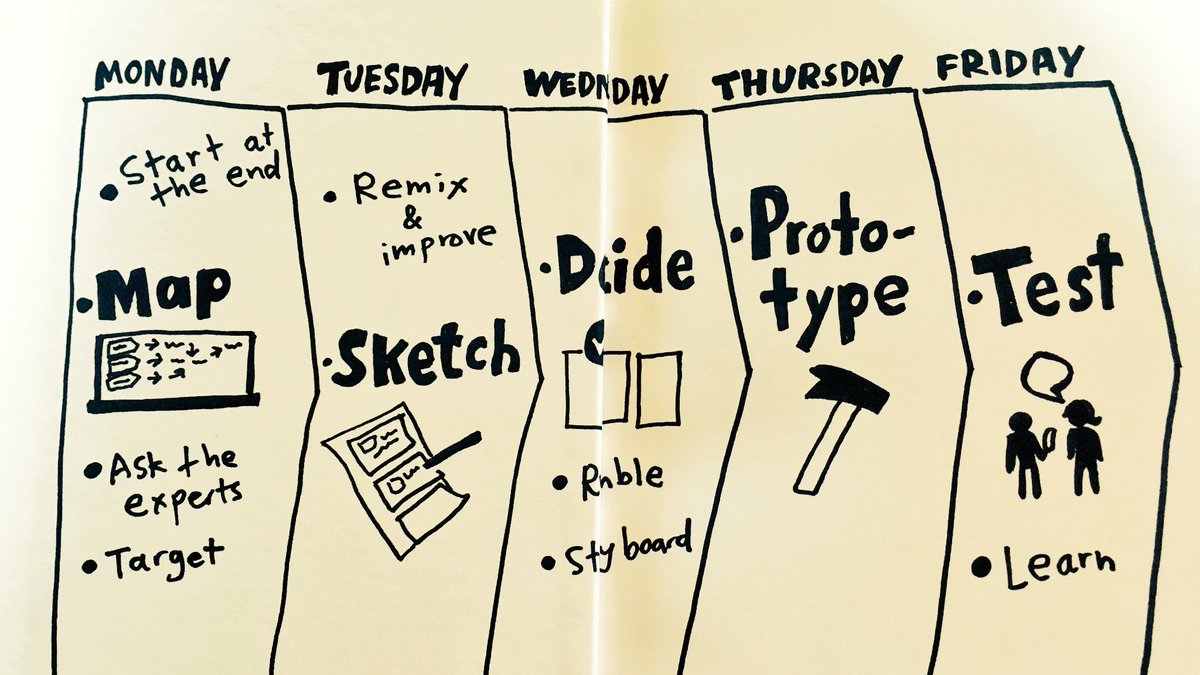 MONDAY
• Start at
the end
• Map
• Ask the
experts
• Target
TUESDAY
• Remix
&
improve
• Sketch
WEDNDAY
• Dcide
• Rnble
• Styboard
THURSDAY
• Proto-
type
FRIDAY
• Test
• Learn